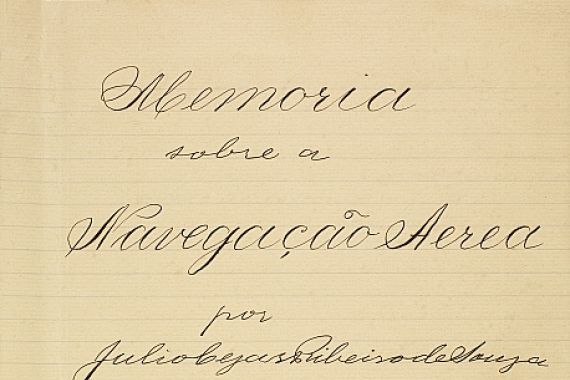 Memoria
sobre a
Navegação Aerea
por
Julio Cezar Ribeiro de Souza